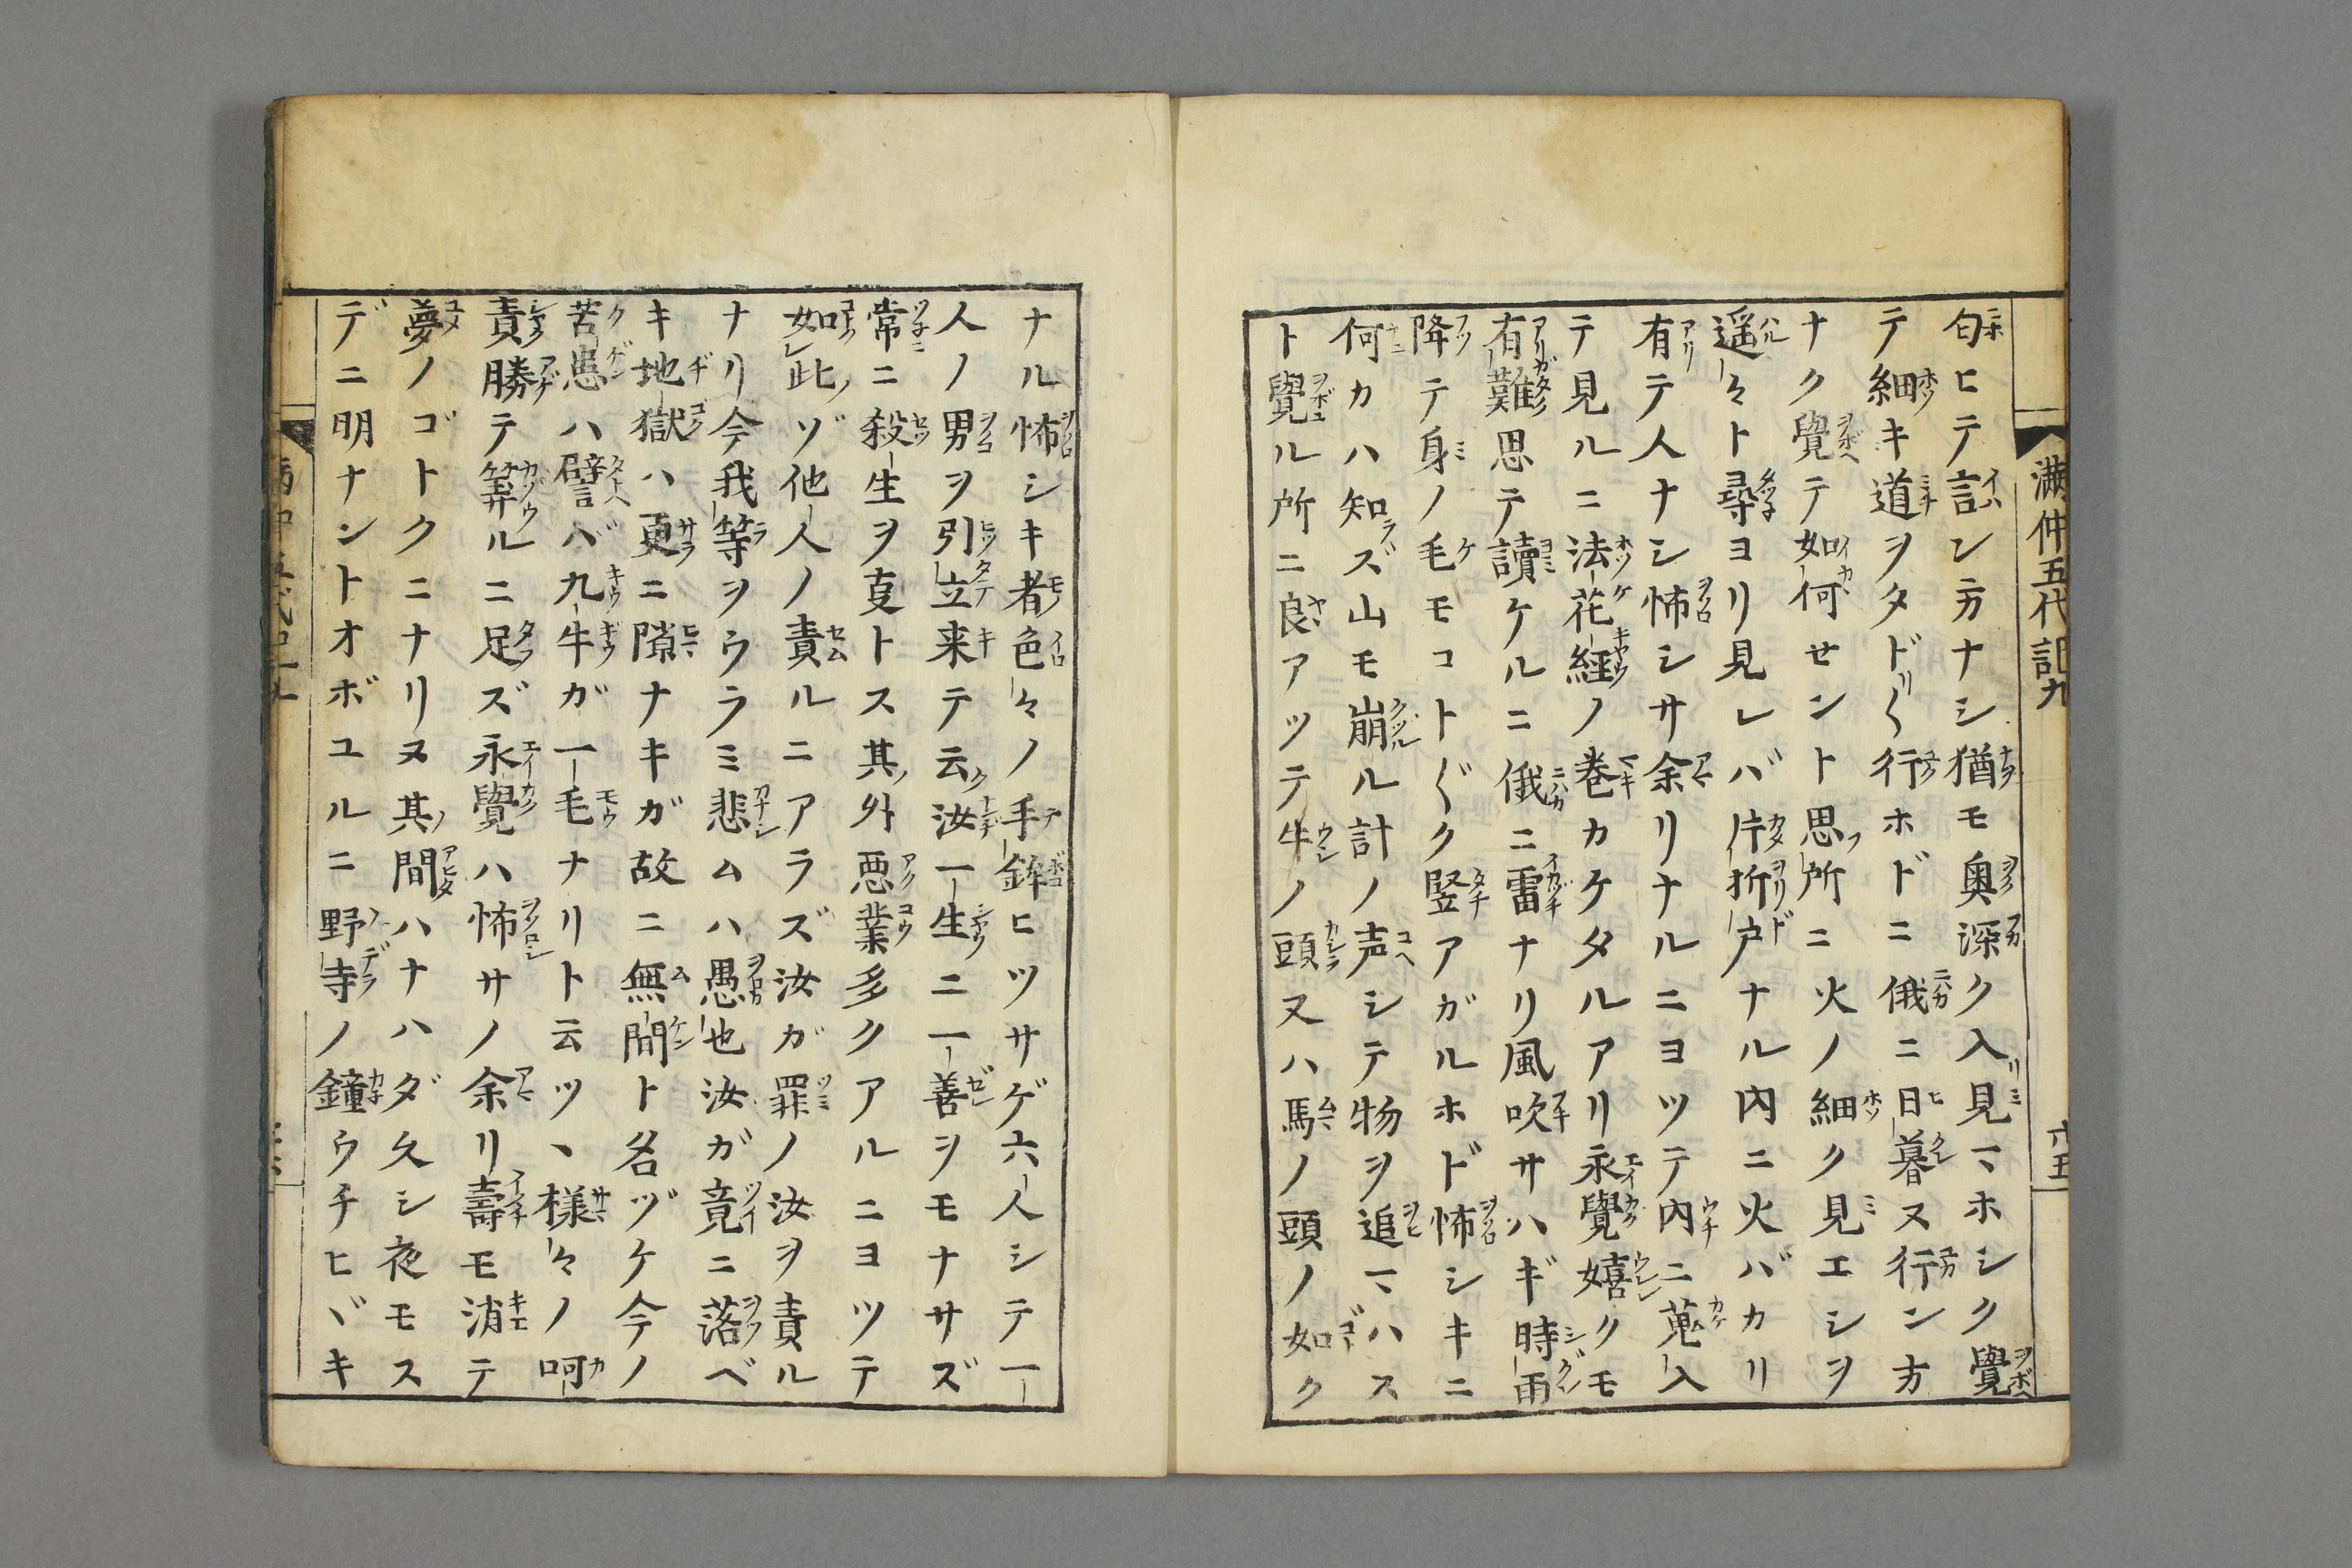 満仲五代記九
六五
匂ヒテ言ン方ナシ猶モ奥深ク入見マホシク覺
テ細キ道ヲタドリ〱行ホドニ俄ニ日暮ヌ行ン方
ナク覺テ如何せント思所ニ火ノ細ク見エシヲ
遥々ト尋ヨリ見レバ片折戸ナル内ニ火バカリ
有テ人ナシ怖シサ余リナルニヨツテ内ニ蒐入
テ見ルニ法花經ノ巻カケタルアリ永覺嬉クモ
有難思テ讀ケルニ俄ニ雷ナリ風吹サハギ時雨
降テ身ノ毛モコト〲ク竪アガルホド怖シキニ
何カハ知ズ山モ崩ル計ノ声シテ物ヲ追マハス
ト覺ル所ニ良アツテ牛ノ頭又ハ馬ノ頭ノ如ク
ナル怖シキ者色々ノ手鉾ヒツサゲ六人シテ一
人ノ男ヲ引立来テ云汝一生ニ一善ヲモナサズ
常ニ殺生ヲ㕝トス其外悪業多クアルニヨツテ
如此ゾ他人ノ責ルニアラズ汝ガ罪ノ汝ヲ責ル
ナリ今我等ヲウラミ悲ムハ愚也汝ガ竟ニ落ベ
キ地獄ハ更ニ隙ナキガ故ニ無間ト名ヅケ今ノ
苦患ハ譬バ九牛ガ一毛ナリト云ツヽ様々ノ呵
責勝テ筭ルニ足ズ永覺ハ怖サノ余リ壽モ消テ
夢ノゴトクニナリヌ其間ハナハダ久シ夜モス
デニ明ナントオボユルニ野寺ノ鐘ウチヒヾキ